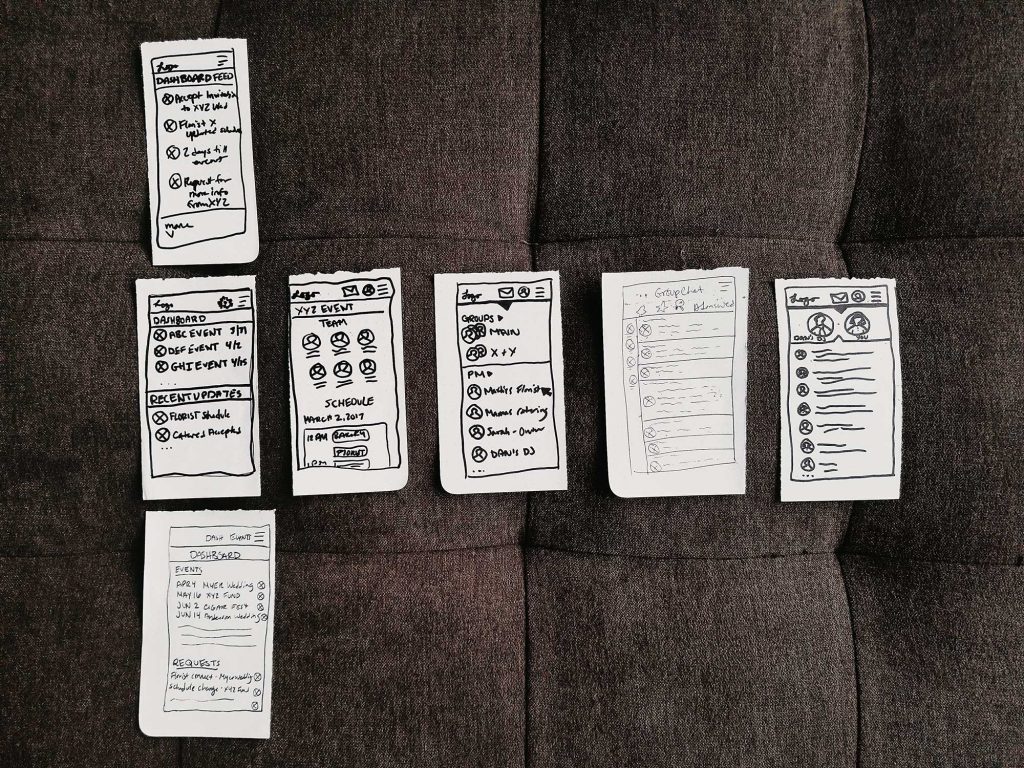 Logo
DASHBOARD FEED
Accept
to XYZ Wed
Florist X
updated
2 days till
event
Request for
more info
from XYZ
more
Logo
DASHBOARD
ABC EVENT 3/11
DEF EVENT 4/2
GHI EVENT 4/15
...
RECENT UPDATES
FLORIST Schedule
Catered Accepted
...
Logo
XYZ EVENT
TEAM
SCHEDULE
MARCH 2, 2017
12 AM BAKERY
FLORIST
1 PM
Logo
GROUPS
MAIN
X + Y
PM
Florist
Mamas catering
Sarah - Owner
DAN'S DJ
... GroupChat
Logo
DAN'S DJ YOU
DASH EVENTS
DASHBOARD
EVENTS
APR 4 MYER Wedding
MAY 16 XYZ FUND
JUN 2 CIGAR FEST
JUN 14 Anderson Wedding
REQUESTS
Florist connect -
Schedule change - XYZ Fund